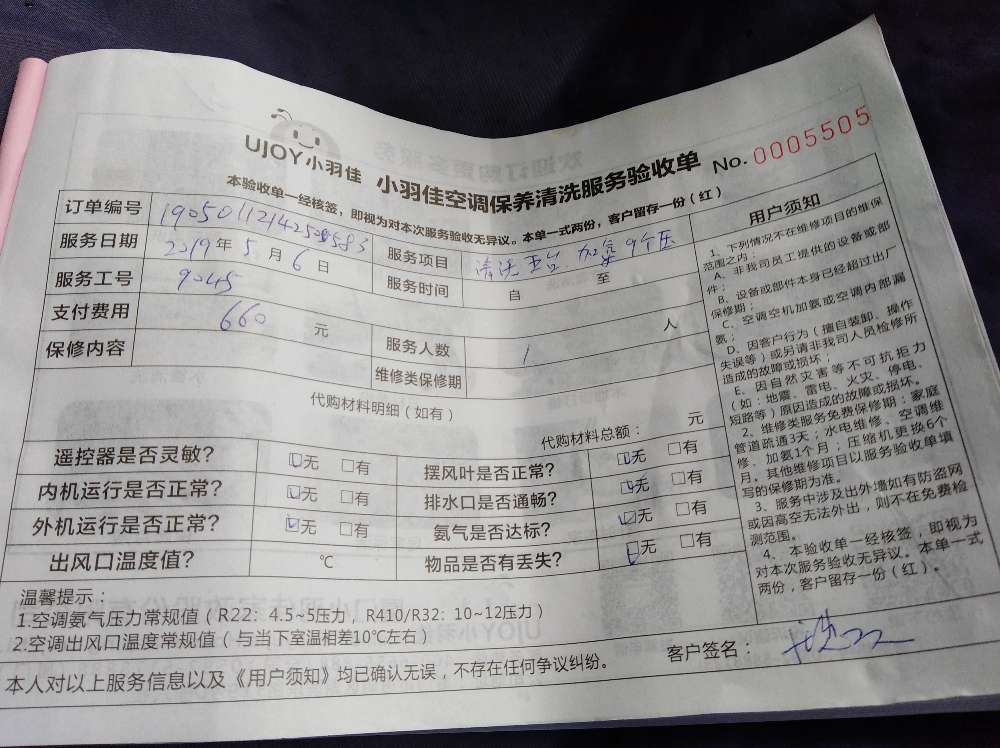 UJOY小羽佳 小羽佳空调保养清洗服务验收单 No.0005505
本验收单一经核签，即视为对本次服务验收无异议。本单一式两份，客户留存一份（红）
订单编号
服务项目 清洗 加氨9个压
服务日期 2019年5月6日
服务时间 自 至
服务工号 9045
支付费用 660 元
服务人数 1 人
保修内容
维修类保修期
代购材料明细（如有）
代购材料总额： 元
遥控器是否灵敏？ ☑无 □有 摆风叶是否正常？ ☑无 □有
内机运行是否正常？ ☑无 □有 排水口是否通畅？ ☑无 □有
外机运行是否正常？ ☑无 □有 氨气是否达标？ ☑无 □有
出风口温度值？ ℃ 物品是否有丢失？ ☑无 □有
温馨提示：
1.空调氨气压力常规值（R22：4.5~5压力，R410/R32：10~12压力）
2.空调出风口温度常规值（与当下室温相差10℃左右）
本人对以上服务信息以及《用户须知》均已确认无误，不存在任何争议纠纷。
客户签名：
用户须知
1、下列情况不在维修项目的维保
范围之内：
A、非我司员工提供的设备或部
件；
B、设备或部件本身已经超过出厂
保修期；
C、空调空机加氨或空调内部漏
氨；
D、因客户行为（擅自装卸、操作
失误等）或另请非我司人员检修所
造成的故障或损坏；
E、因自然灾害等不可抗拒力
（如：地震、雷电、火灾、停电、
短路等）原因造成的故障或损坏。
2、维修类服务免费保修期：家庭
管道疏通3天；水电维修、空调维
修、加氨1个月；压缩机更换6个
月。其他维修项目以服务验收单填
写的保修期为准。
3、服务中涉及出外墙如有防盗网
或因高空无法外出，则不在免费检
测范围。
4、本验收单一经核签，即视为
对本次服务验收无异议。本单一式
两份，客户留存一份（红）。